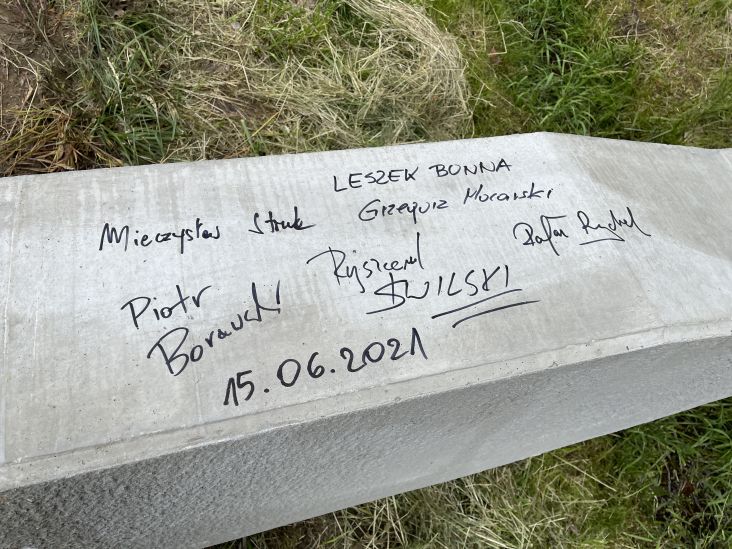 LESZEK BONNA
Mieczysław Struk
Grzegorz Mocarski
Rafał Rychel
Piotr
Borawski
Ryszard
ŚWILSKI
15.06.2021